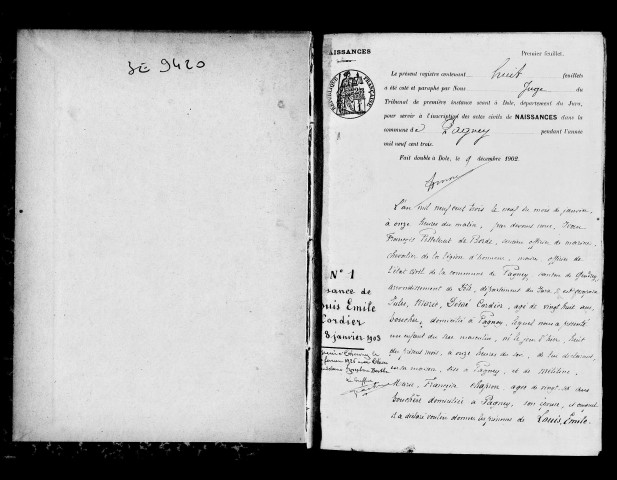 3E 9420
NAISSANCES
Premier feuillet.
RÉPUBLIQUE FRANÇAISE
Le présent registre contenant huit feuillets
a été coté et paraphé par Nous Juge du
Tribunal de première instance séant à Dole, département du Jura,
pour servir à l'inscription des actes civils de NAISSANCES dans la
commune de Pagney pendant l'année
mil neuf cent trois.
Fait double à Dole, le 9 décembre 1902.
L'an mil neuf cent trois le neuf du mois de janvier,
à onze heures du matin, par devant nous, Jean
François de Borde, officier de marine,
chevalier de la légion d'honneur, maire officier de
l'état civil de la commune de Pagney, canton de Gendrey,
arrondissement de Dole, département du Jura, est
Jules, Désiré Cordier, âgé de vingt huit ans,
boucher, domicilié à Pagney, lequel nous a présenté
un enfant du sexe masculin, né le jour d'hier, huit
du présent mois, à onze heures du soir,
en sa maison, sise à Pagney, et de
Marie Françoise Chapron, âgée de vingt six ans
bouchère domiciliée à Pagney, son épouse, et auquel
il a déclaré vouloir donner les prénoms de Louis, Emile.
N° 1
ssance de
ouis Emile
Cordier
8 janvier 1903